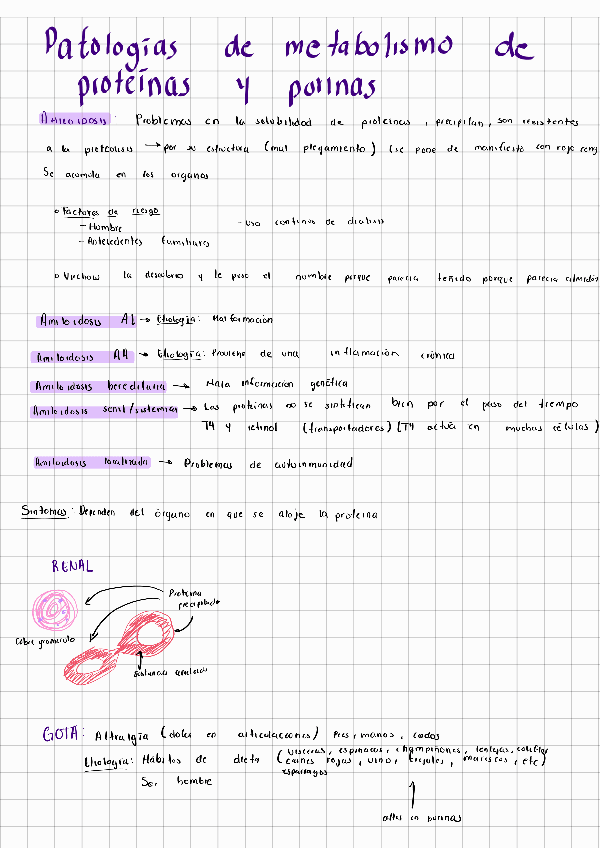 Patologías de metabolismo de
proteínas y purinas
Amiloidosis: Problemas en la solubilidad de proteinas, precipitan, son resistentes
a la proteolisis → por su estructura (mal plegamiento) (se pone de manifiesto con rojo cong
Se acumula en los organos
Factores de riesgo
- Hombre - uso continuo de dialisis
- Antecedentes familiares
Virchow la descubrio y le puso el nombre porque parecia teñido porque parecia almidón
Amiloidosis AL → Etiología: Mal formación
Amiloidosis AA → Etiología: Proviene de una inflamación crónica
Amiloidosis hereditaria → Mala informacion genética
Amiloidosis senil/sistemica → Las proteínas no se sintetizan bien por el paso del tiempo
T4 y retinol (transportadores) (T4 actúa en muchas células)
Amiloidosis localizada → Problemas de autoinmunidad
Sintomas: Dependen del órgano en que se aloje la proteina
RENAL
Proteina
precipitada
Sustancia amiloide
GOTA: Altralgía (dolor en articulaciones) Pies, manos, codos
Etiología: Habitos de dieta (visceras, espinacas, champiñones, lentejas, coliflor
carnes rojas, vino, frijoles, mariscos, etc)
esparragos
Ser hombre
altos en purinas